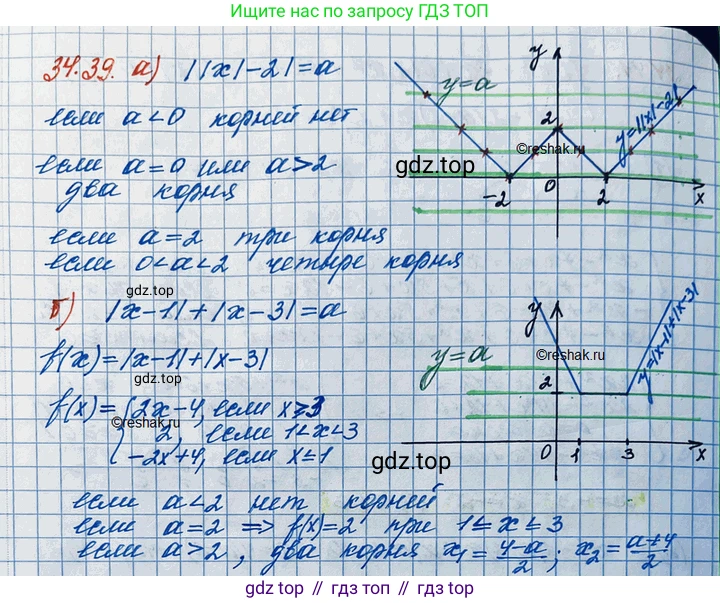 Ищите нас по запросу ГДЗ ТОП
34.39. а) ||x|-2|=a
если a<0 корней нет
если a=0 или a>2
два корня
если a=2 три корня
если 0<a<2 четыре корня
y
y=a
2
y=||x|-2|
©reshak.ru
gdz.top
-2 0 2 x
б) |x-1|+|x-3|=a
f(x)=|x-1|+|x-3|
f(x)={2x-4, если x≥3
2, если 1<x<3
-2x+4, если x≤1
gdz.top
©reshak.ru
y
y=a
2
y=|x-1|+|x-3|
©reshak.ru
0 1 3 x
gdz.top
если a<2 нет корней
если a=2 => f(x)=2 при 1≤x≤3
если a>2, два корня x₁=(4-a)/2; x₂=(a+4)/2
gdz.top // гдз.топ // gdz.top